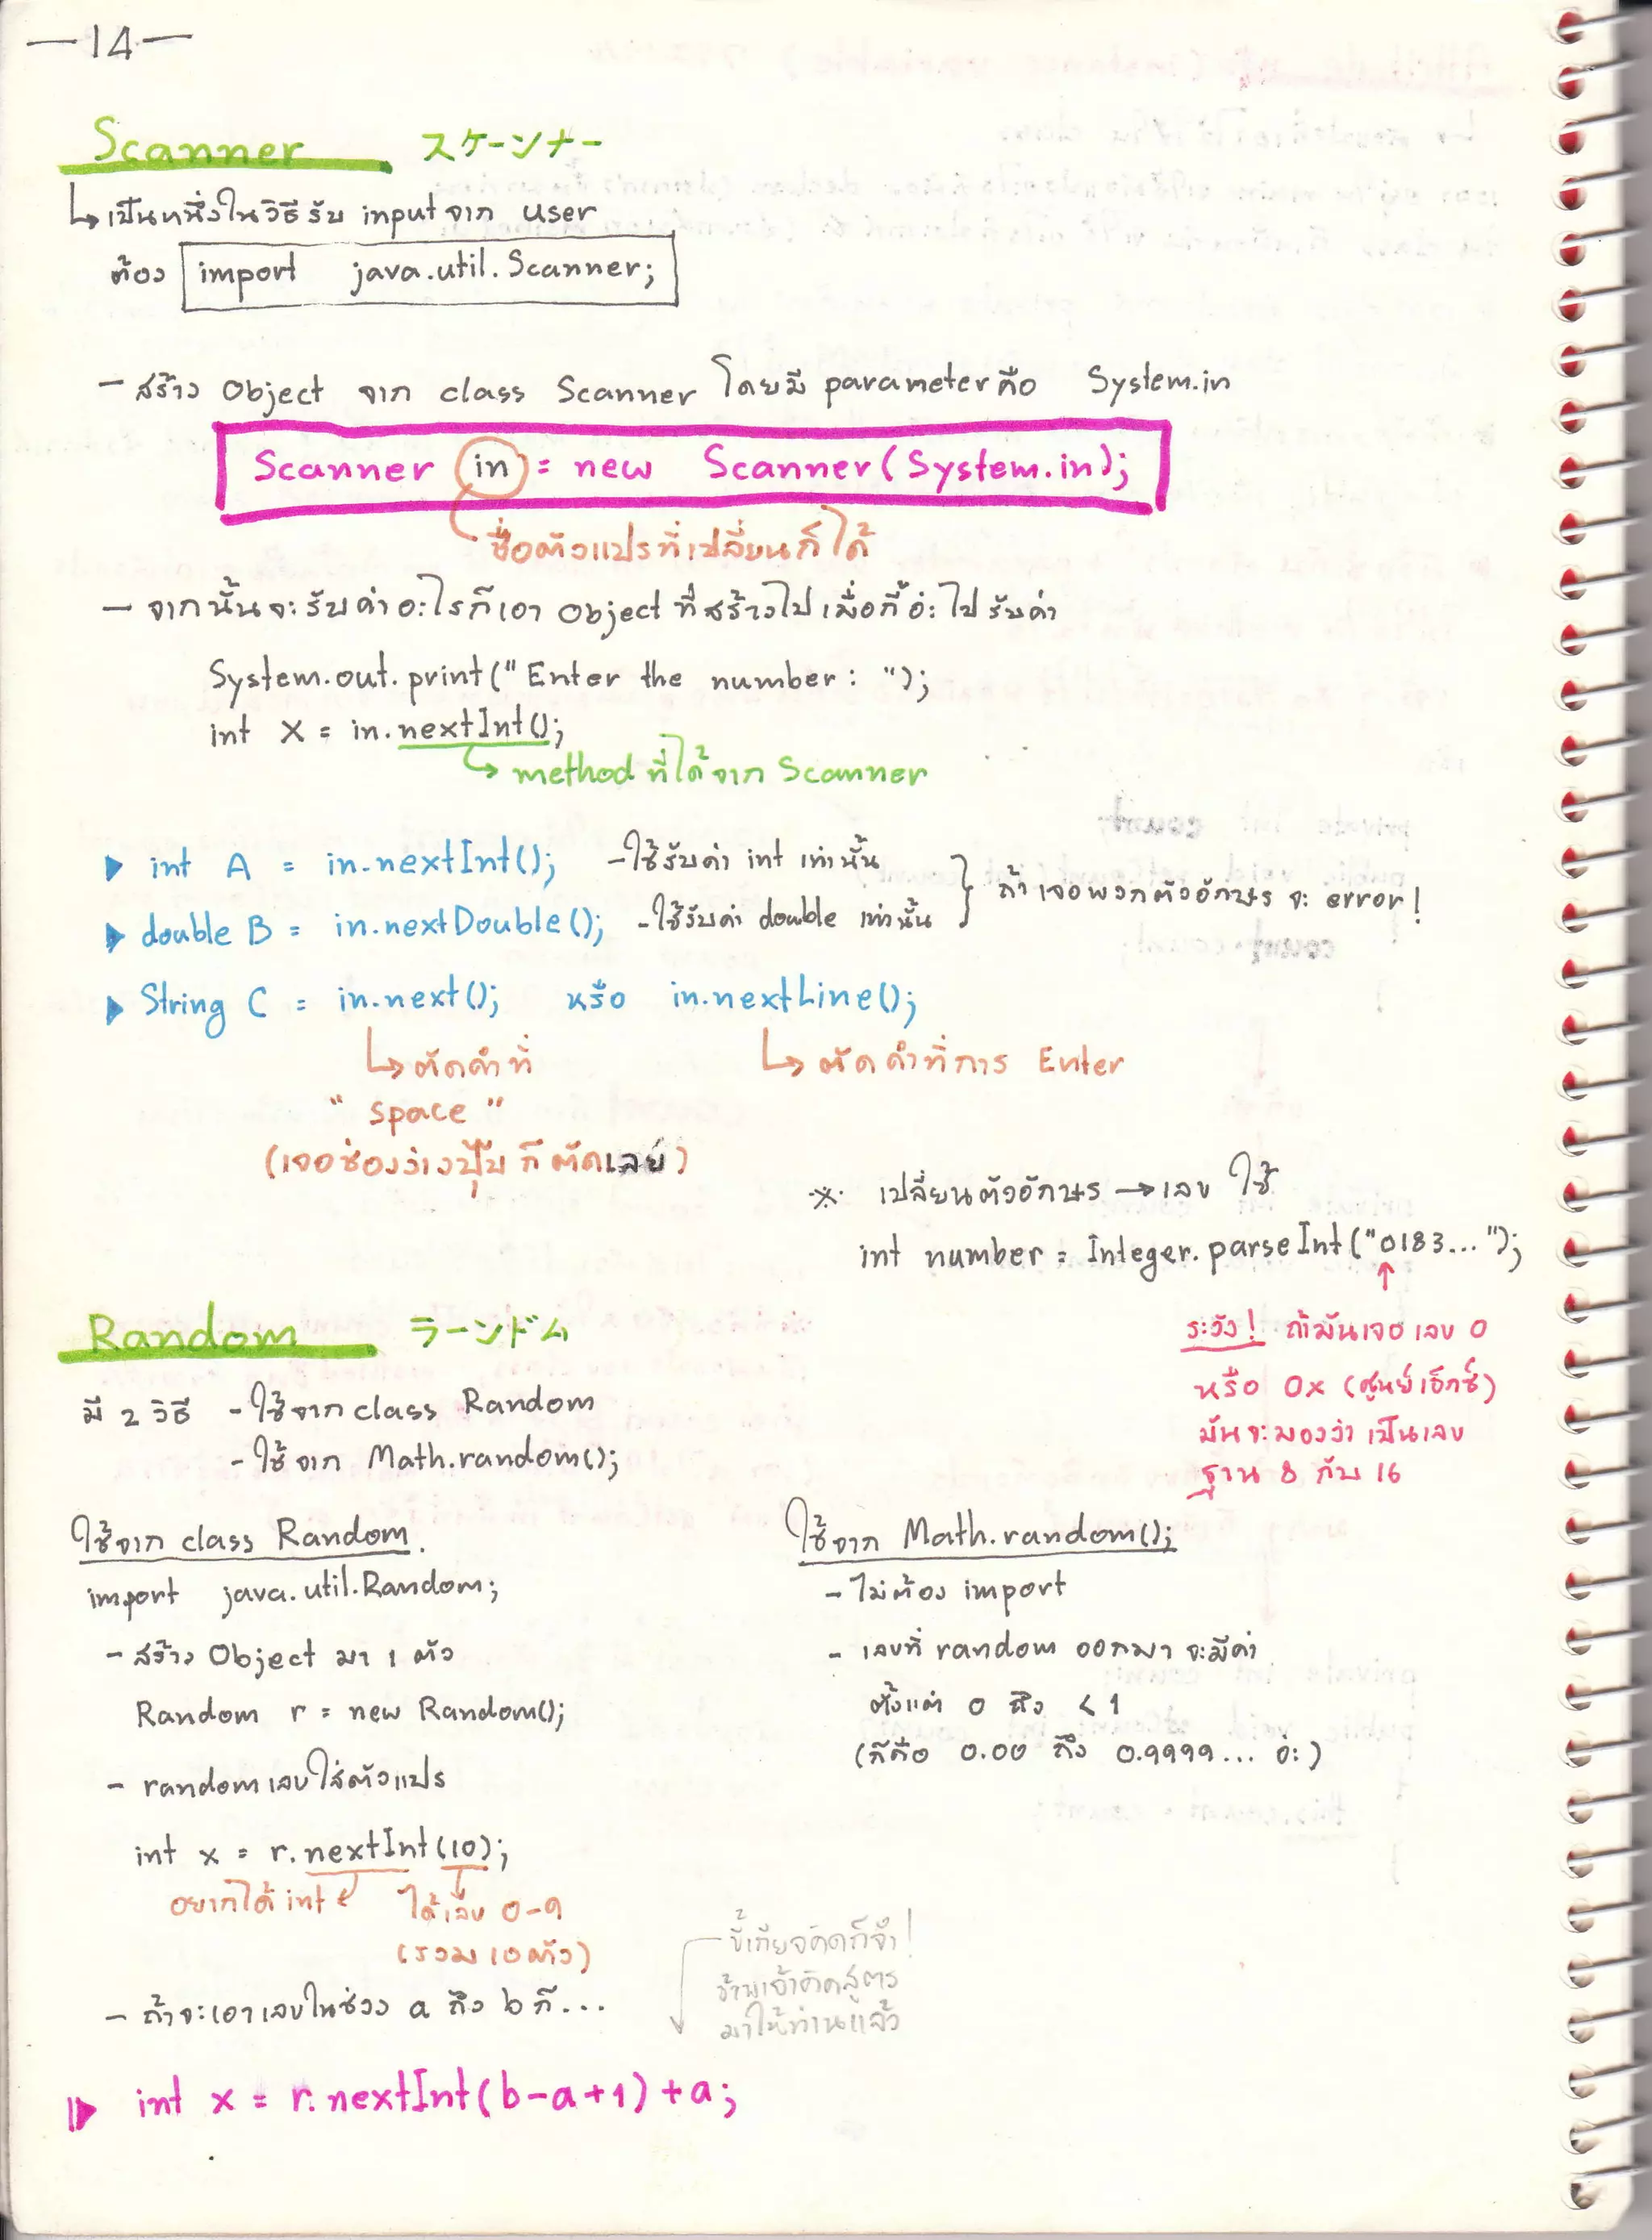 —14—
Scanner スケーンナー
↳ เป็นหนึ่งในวิธีรับ input จาก user
ต้อง import java.util.Scanner;
- สร้าง Object จาก class Scanner โดยมี parameter คือ System.in
Scanner in = new Scanner(System.in);
ชื่อตัวแปรที่เปลี่ยนก็ได้
- จากนั้นจะรับค่าอะไรก็เอา Object ที่สร้างไปเมื่อกี้อ่ะไปรับค่า
System.out.print("Enter the number: ");
int X = in.nextInt();
↳ method ที่ได้จาก Scanner
▶ int A = in.nextInt(); -ใช้รับค่า int เท่านั้น
▶ double B = in.nextDouble(); -ใช้รับค่า double เท่านั้น
} ถ้าเจอพวกตัวอักษรจะ error!
▶ String C = in.next(); หรือ in.nextLine();
↳ ตัดคำที่
"space"
(เจอช่องว่างปุ๊บก็ตัดเลย)
↳ ตัดคำที่การ Enter
※ เปลี่ยนตัวอักษร → เลข ใช้
int number = Integer.parseInt("0183...");
↑
ระวัง! ถ้ามันเจอเลข 0
หรือ 0x (ศูนย์เอ็กซ์)
มันจะมองว่าเป็นเลข
ฐาน 8 กับ 16
Random ラーンドム
มี 2 วิธี - ใช้จาก class Random
- ใช้จาก Math.random();
ใช้จาก class Random.
import java.util.Random;
- สร้าง Object มา 1 ตัว
Random r = new Random();
- random เลขใส่ตัวแปร
int x = r.nextInt(10);
อยากได้ int
ได้เลข 0-9
(รวม 10 ตัว)
- ถ้าจะเอาเลขในช่วง a ถึง b ก็...
ขี้เกียจคิดก็จำ!
ข้าพเจ้าคิดสูตร
มาให้ท่านแล้ว
▶ int x = r.nextInt(b-a+1)+a;
ใช้จาก Math.random();
- ไม่ต้อง import
- เลขที่ random ออกมาจะมีค่า
ตั้งแต่ 0 ถึง < 1
(ก็คือ 0.00 ถึง 0.9999... อ่ะ)